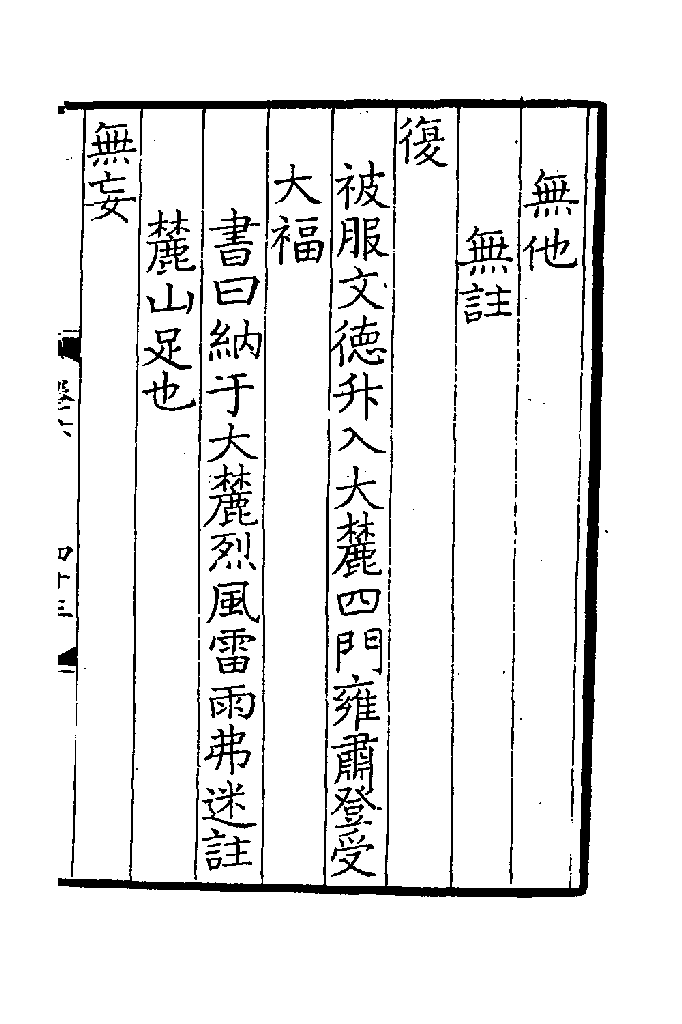 無他
無註
復
被服文德升入大麓四門雍肅登受
大福
書曰納于大麓烈風雷雨弗迷註
麓山足也
無妄
四十三